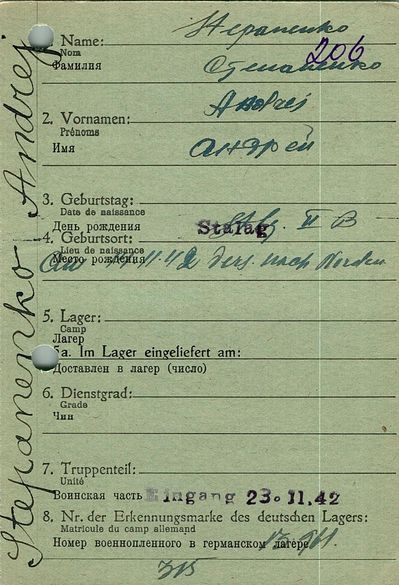 Stepanenko Andrej
Stepanenko
1. Name:
Nom
206
Фамилия
Степаненко
Andrej
2. Vornamen:
Prénoms
Имя
Андрей
3. Geburtstag:
Date de naissance
День рождения
Stalag II B
4. Geburtsort:
Lieu de naissance
Место рождения
11.42 vers. nach Norden
5. Lager:
Camp
Лагерь
5a. Im Lager eingeliefert am:
Доставлен в лагер (число)
6. Dienstgrad:
Grade
Чин
7. Truppenteil:
Unité
Воинская часть Eingang 23.11.42
8. Nr. der Erkennungsmarke des deutschen Lagers:
Matricule du camp allemand
Номер военнопленного в германском лагере
315